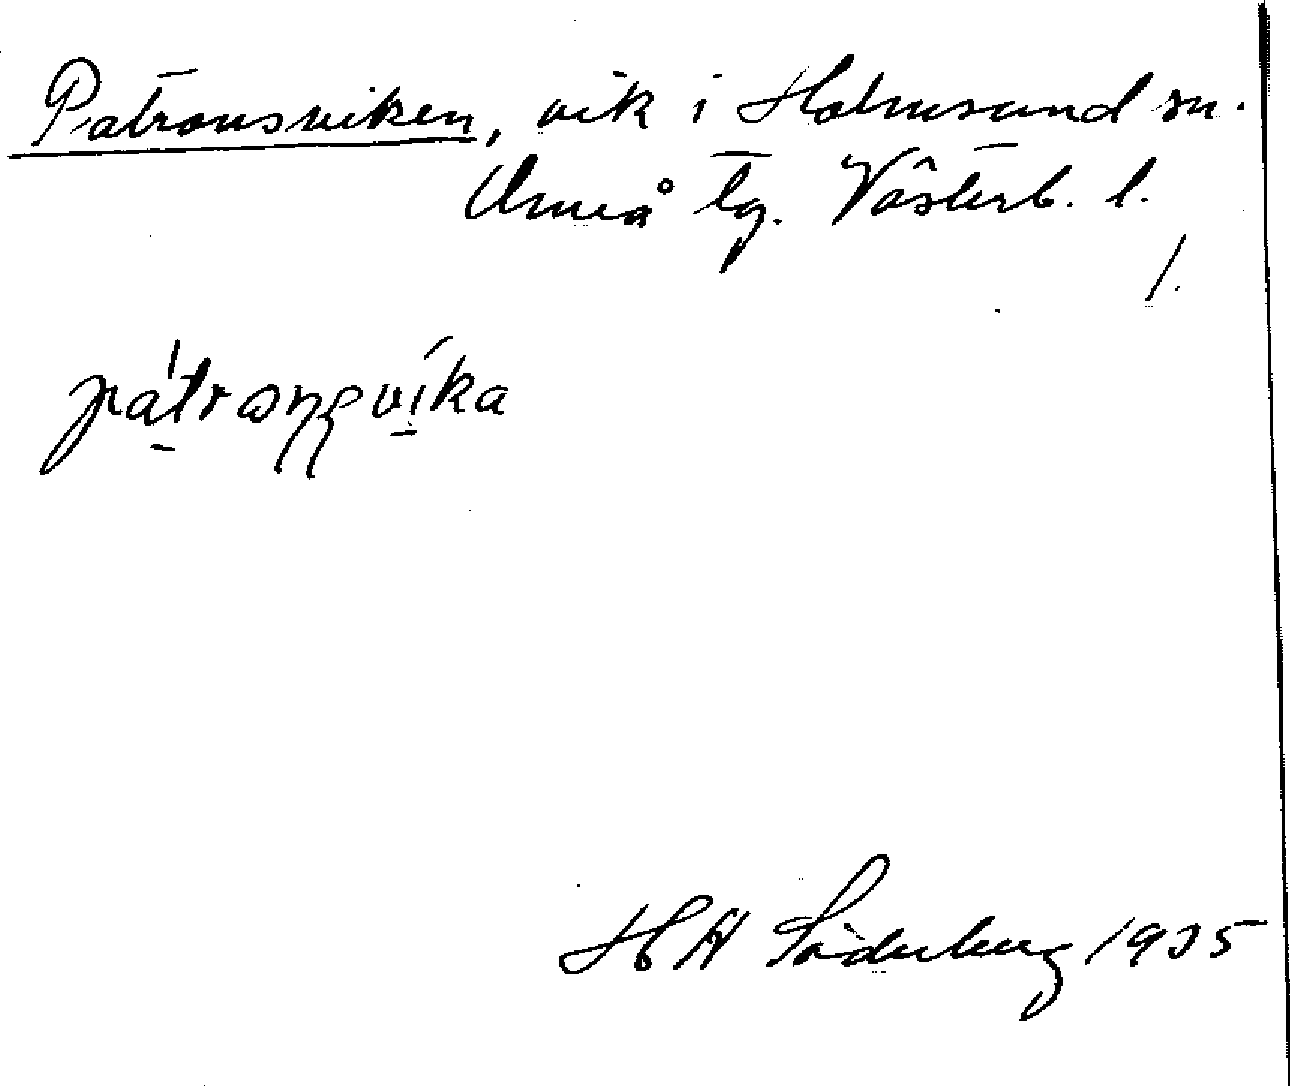 Patronsviken, vik i Holmsund sn.
Umeå tg. Västerb. l.
1.
H A Söderberg 1935